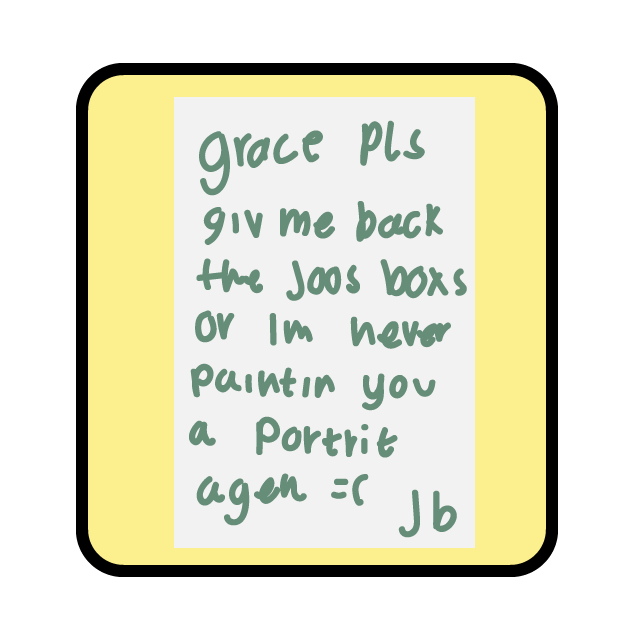 grace pls
giv me back
the joos boxs
or Im never
paintin you
a portrit
agen =(
Jb